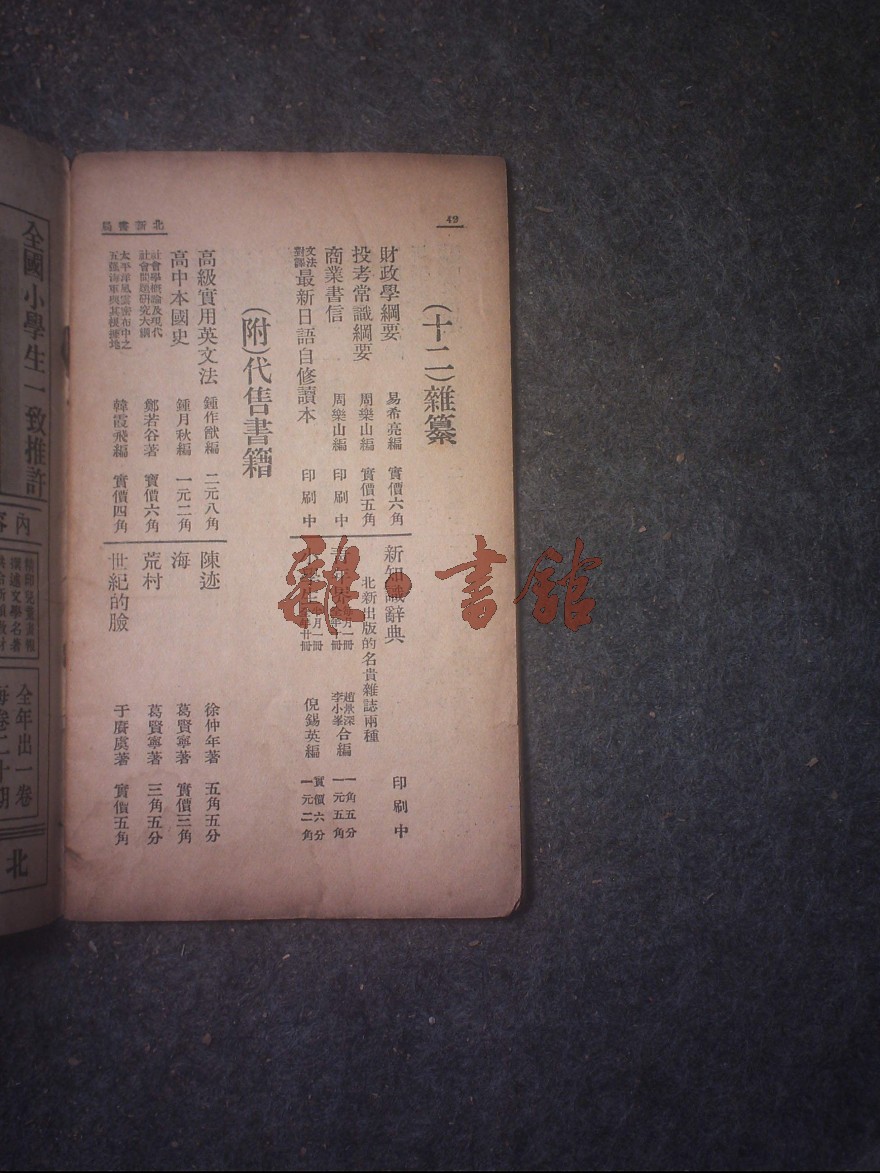 49
北新書局
(十二)雜纂
財政學綱要 易希亮編 實價六角
投考常識綱要 周樂山編 實價五角
商業書信 周樂山編 印刷中
文法對譯最新日語自修讀本 印刷中
新知識辭典 印刷中
北新出版的名貴雜誌兩種
趙景深李小峯合編 一角五分 一元五角
倪錫英編 實價六分 一元二角
(附)代售書籍
高級實用英文法 鍾作猷編 二元八角
高中本國史 鍾月秋編 一元二角
社會學概論及現代社會問題研究大綱 鄭若谷著 實價六角
太平洋風雲密布中之五強海軍與其根據地 韓霞飛編 實價四角
陳迹 徐仲年著 五角五分
海 葛賢寧著 實價三角
荒村 葛賢寧著 三角五分
世紀的臉 于賡虞著 實價五角
全國小學生一致推許
內容
全年出一卷
每卷二十期
北
雜·書館